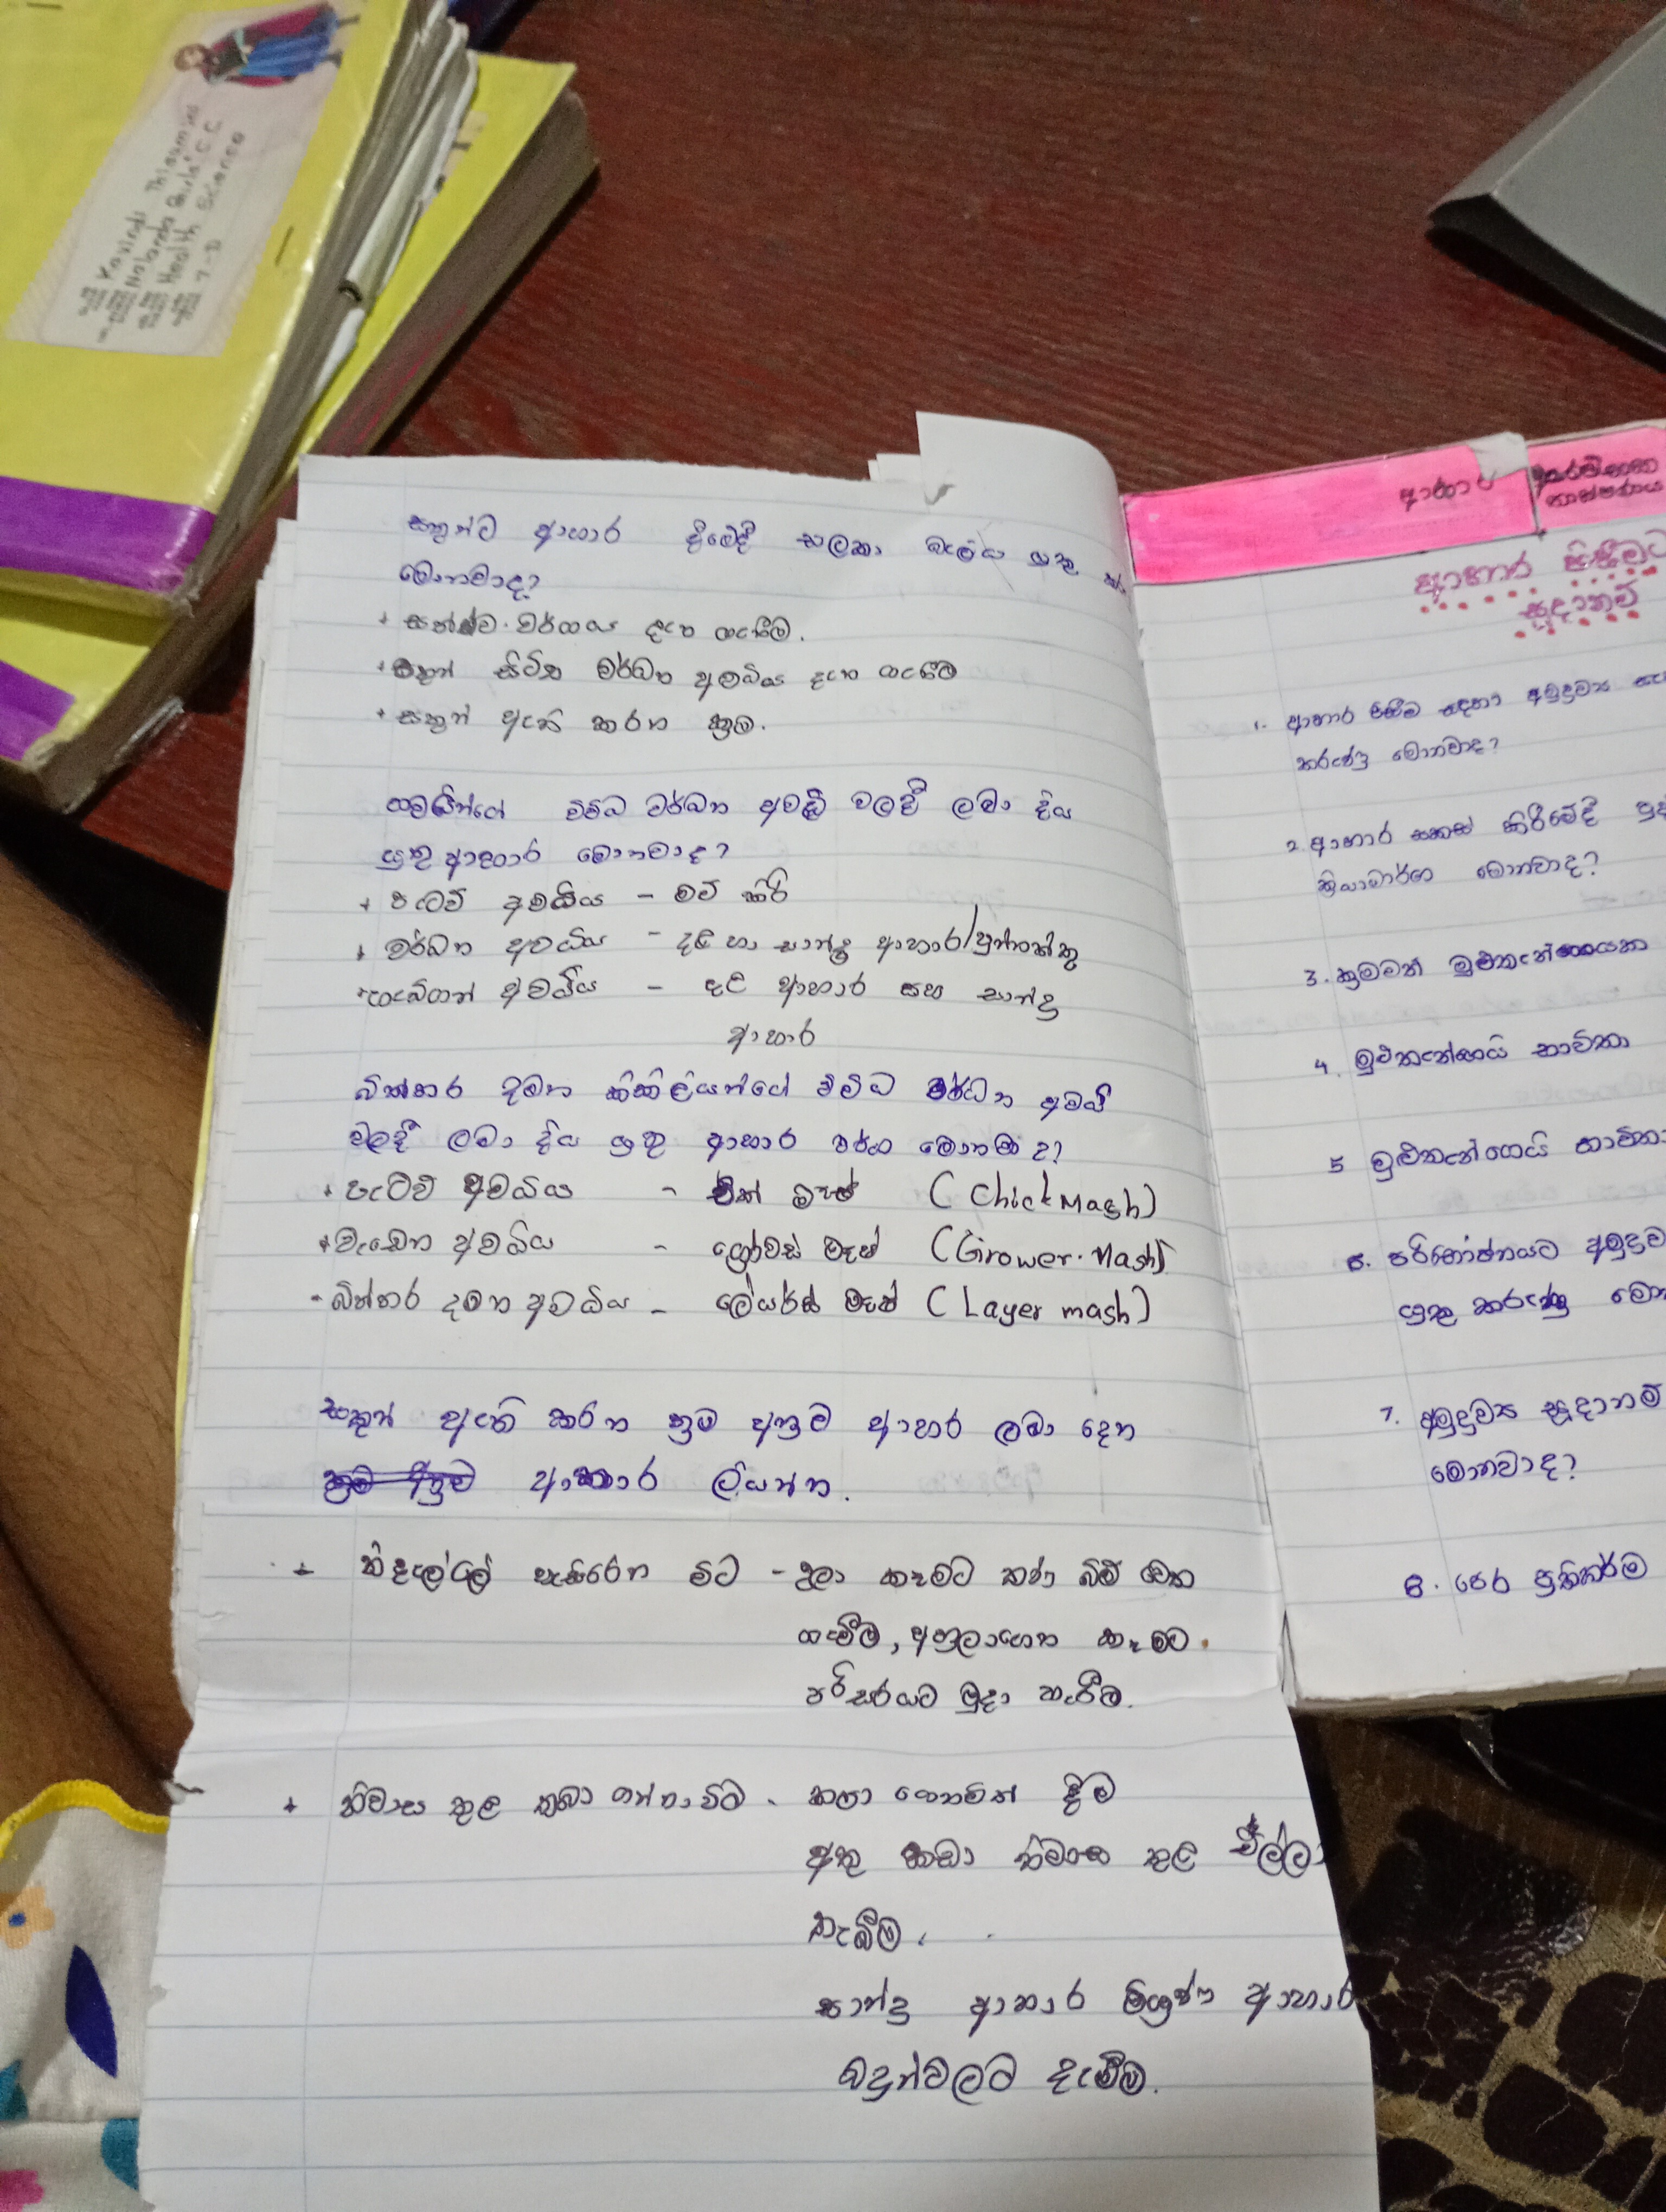 Kavindi
Nalanda Girls' C.C
Health Science
7-D
සතුන්ට ආහාර දීමේදී සලකා බැලිය යුතු
මොනවාද?
සත්ත්ව වර්ගය දැන ගැණීම.
සතුන් සිටින වර්ධන අවධිය දැන ගැණීම
සතුන් ඇති කරන ක්‍රම.
ගවයින්ගේ විවිධ වර්ධන අවධි වලදී ලබා දිය
යුතු ආහාර මොනවාද?
+ පැටව් අවධිය - මව් කිරි
+ වර්ධන අවධිය - දළ හා සාන්ද්‍ර ආහාර/පුන්නක්කු
ගැබ්ගත් අවධිය - දළ ආහාර සහ සාන්ද්‍ර
ආහාර
බිත්තර දමන කිකිළියන්ගේ විවිධ වර්ධන අවධි
වලදී ලබා දිය යුතු ආහාර වර්ග මොනවා ද?
+ පැටව් අවධිය - චික් මෑෂ් (Chick Mash)
+ වැඩෙන අවධිය - ග්‍රෝවස් මෑෂ් (Grower. Mash)
- බිත්තර දමන අවධිය - ලේයර්ස් මෑෂ් (Layer mash)
සතුන් ඇති කරන ක්‍රම අනුව ආහාර ලබා දෙන
ක්‍රම අනුව ආකාර ලියන්න.
+ නිදැල්ලේ හැසිරෙන විට - උලා කෑමට තණ බිම් වෙත
ගැනීම, අහුලාගෙන කෑමට
පරිසරයට මුදා හැරීම.
+ නිවාස තුළ තබා ගන්නා විට - කපා ගෙනවිත් දීම
අතු කඩා නිවාස තුළ එල්ලා
තැබීම.
සාන්ද්‍ර ආහාර මිශ්‍රණ ආහාර
බඳුන්වලට දැමීම.
ආහාර
තාක්ෂණය
ආහාර පිසීමට
සූදානම්
1. ආහාර පිසීම සඳහා අමුද්‍රව්‍ය
කරුණු මොනවාද?
2. ආහාර සකස් කිරීමේදී
ක්‍රියාමාර්ග මොනවාද?
3. ක්‍රමවත් මුළුතැන්ගෙයක
4. මුළුතැන්ගෙයි භාවිතා
5 මුළුතැන්ගෙයි භාවිතා
6. පරිභෝජනයට අමුද්‍රව
යුතු කරුණු
7. අමුද්‍රව්‍ය සූදානම්
මොනවාද?
8. පෙර ප්‍රතිකර්ම